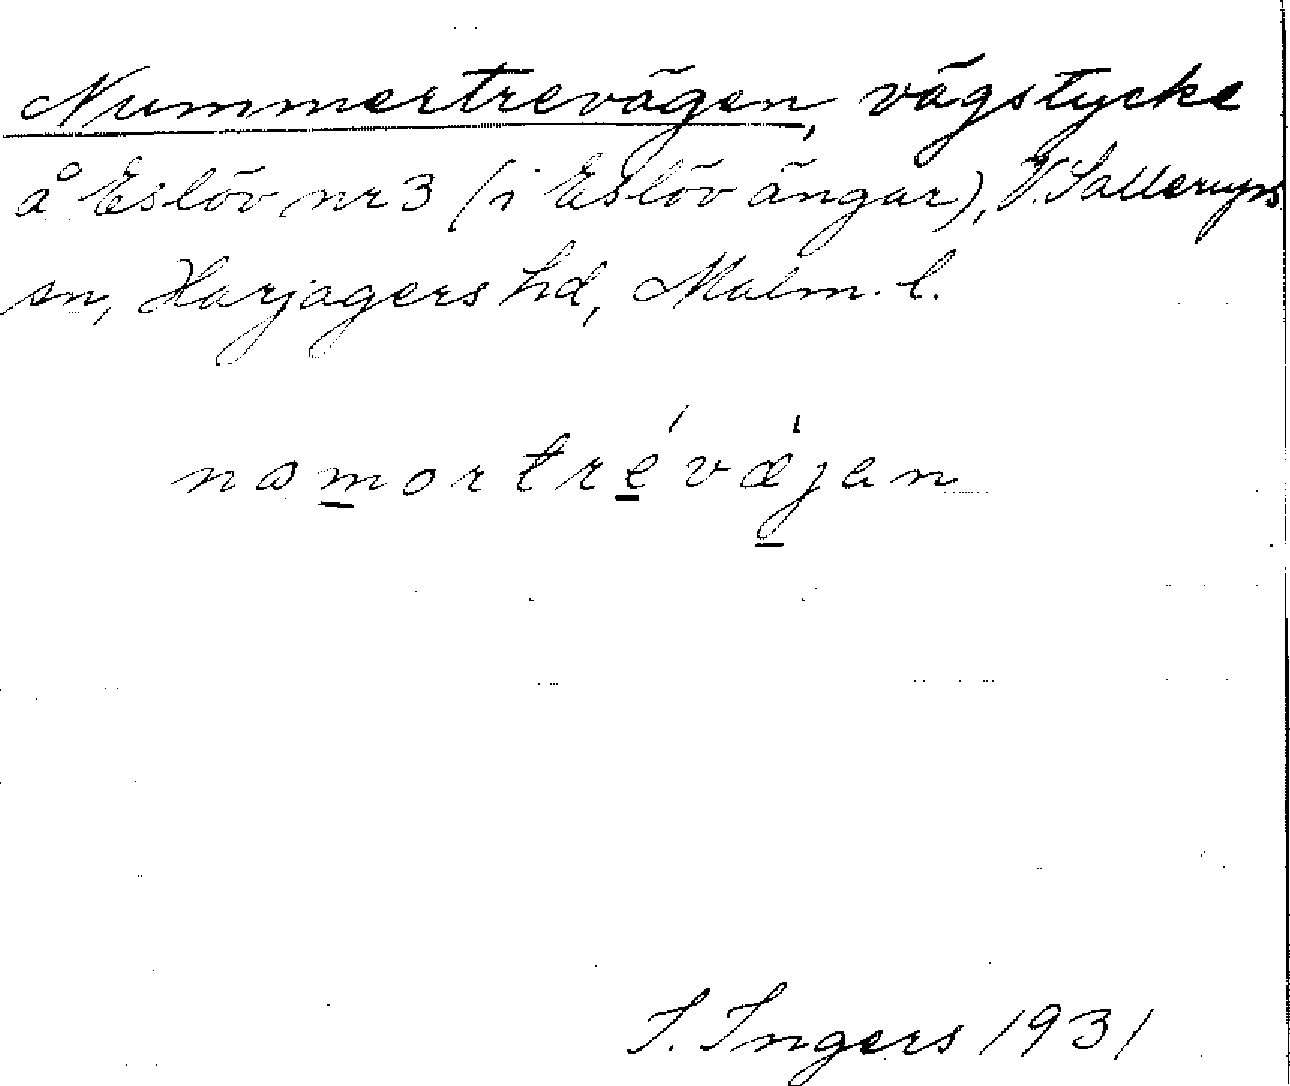 Nummertrevägen, vägstycke
å Eslöv nr 3 (i Eslöv ängar), V. Sallerups
sn, Harjagers hd, Malm. l.
nɷmortrévǽjen
I. Ingers 1931